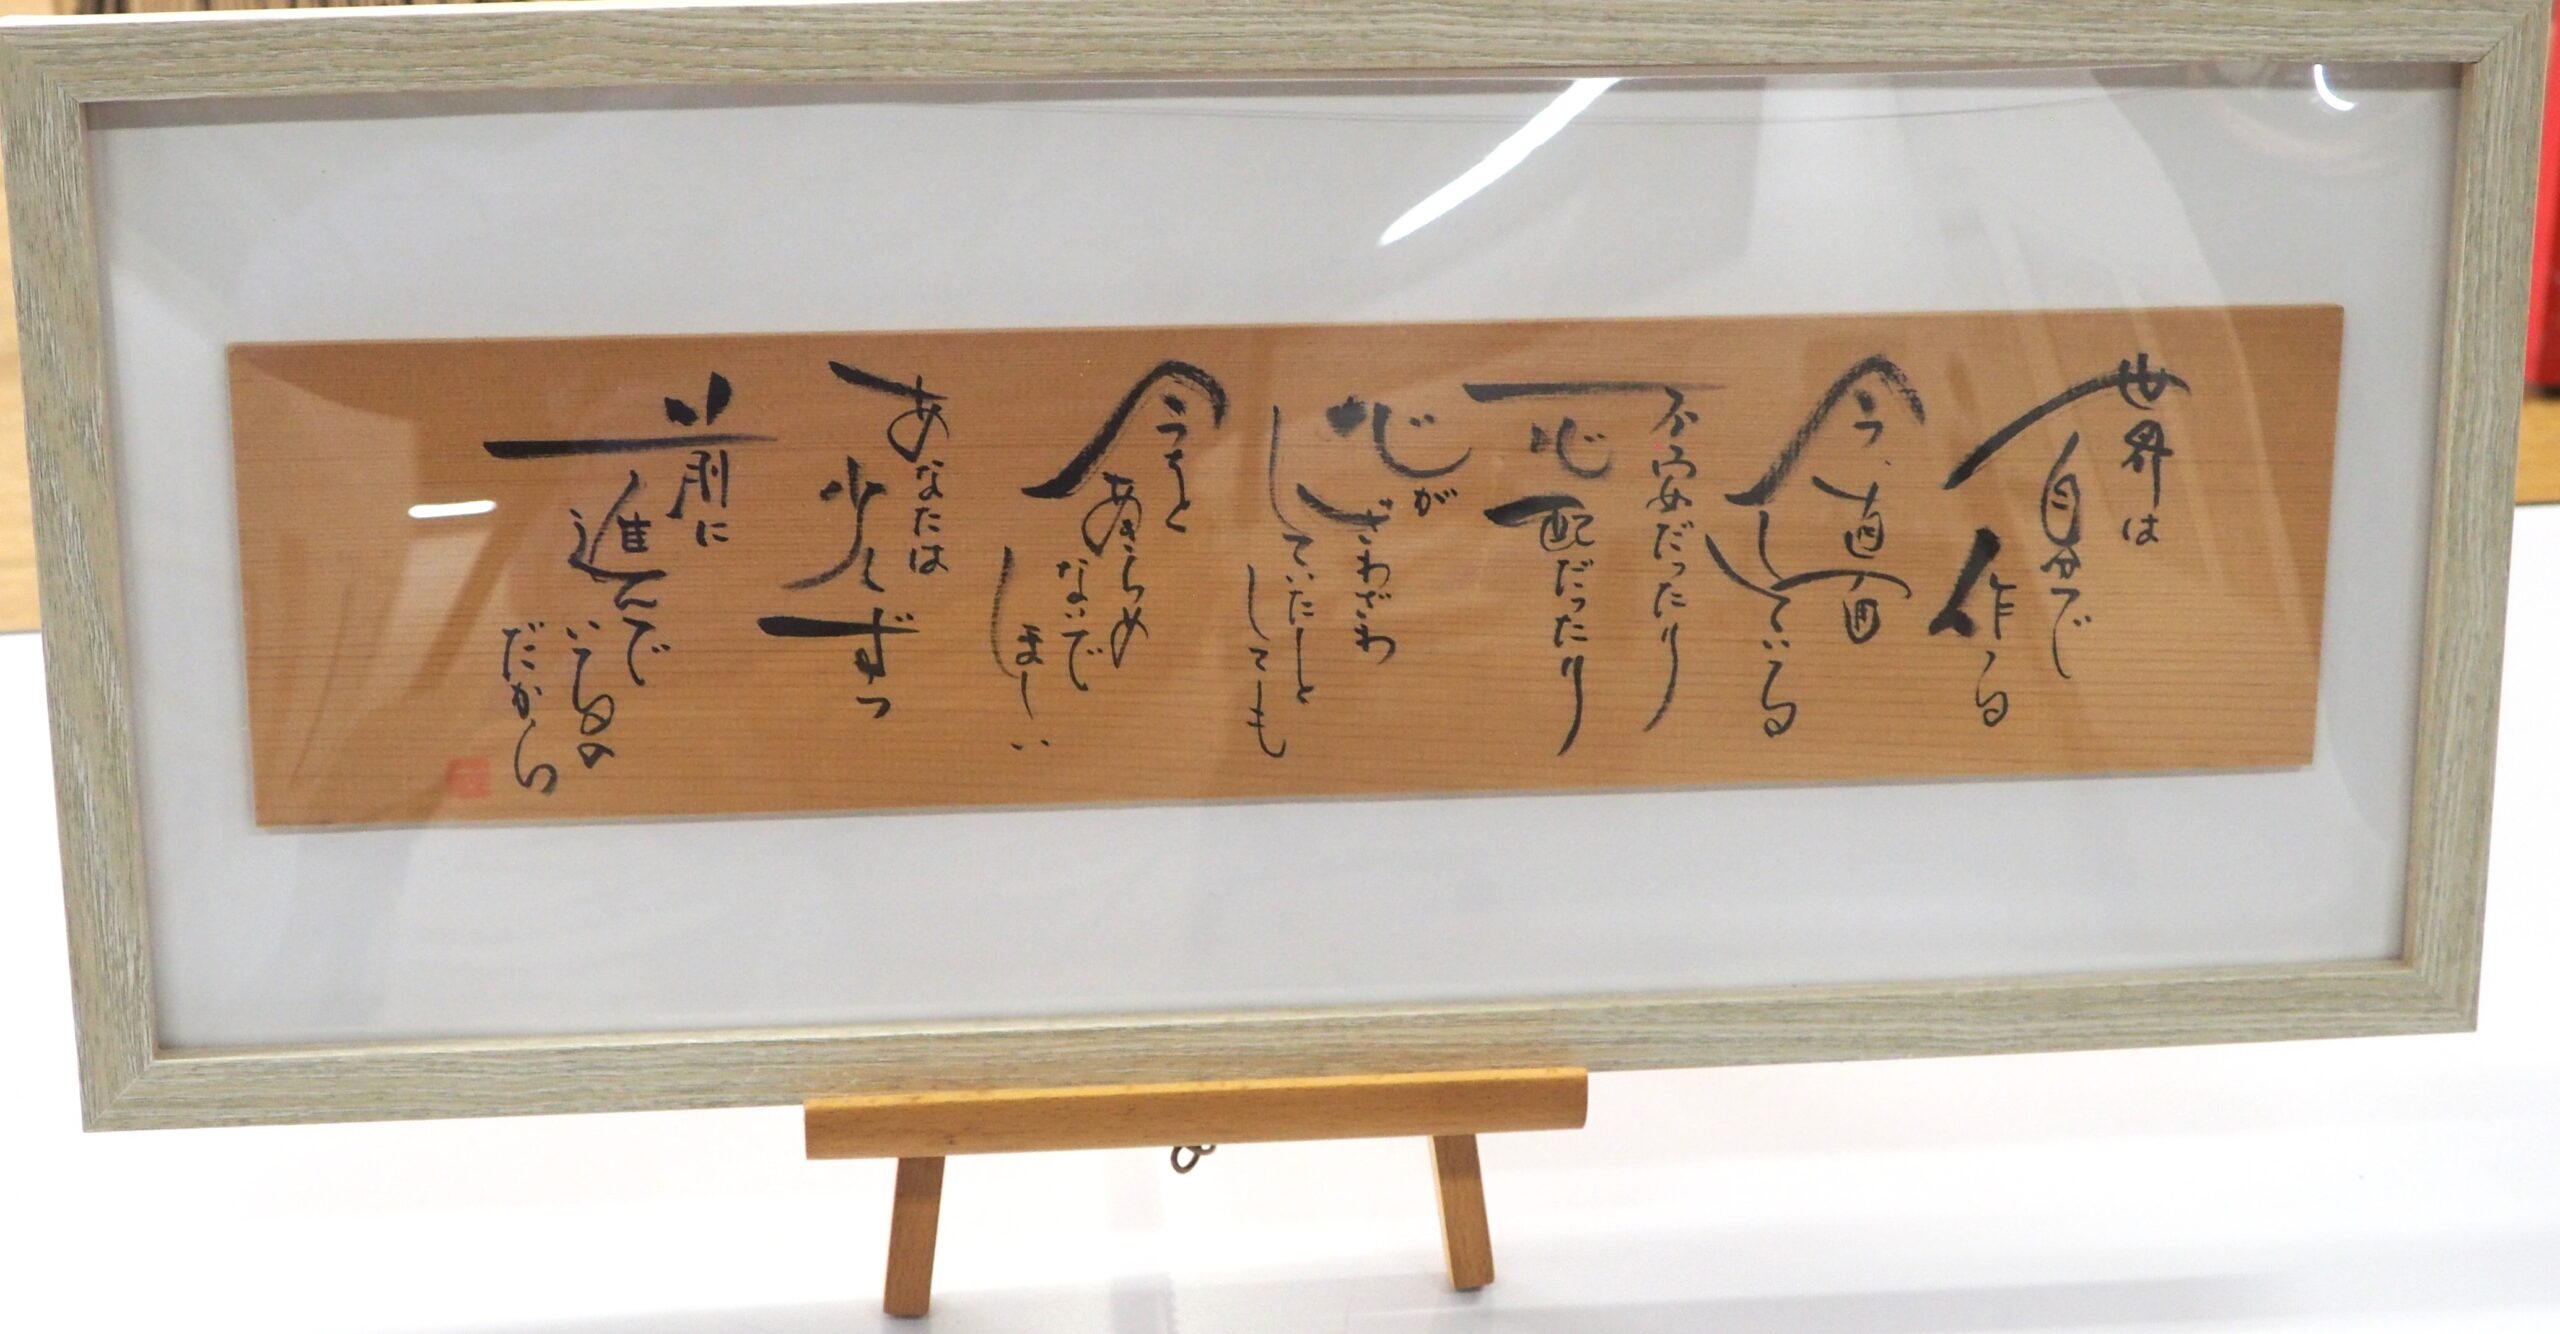 世界は
自分で
作る
今、直面
している
不安だったり
心配だったり
心が
ざわざわ
していたと
しても
今を
あきらめ
ないで
ほしい
あなたは
少し
ずつ
前に
進んで
いるの
だから